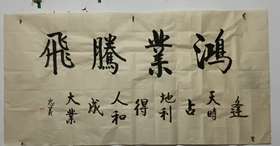 鴻業騰飛
逢天時
占地利
得人和
成大業